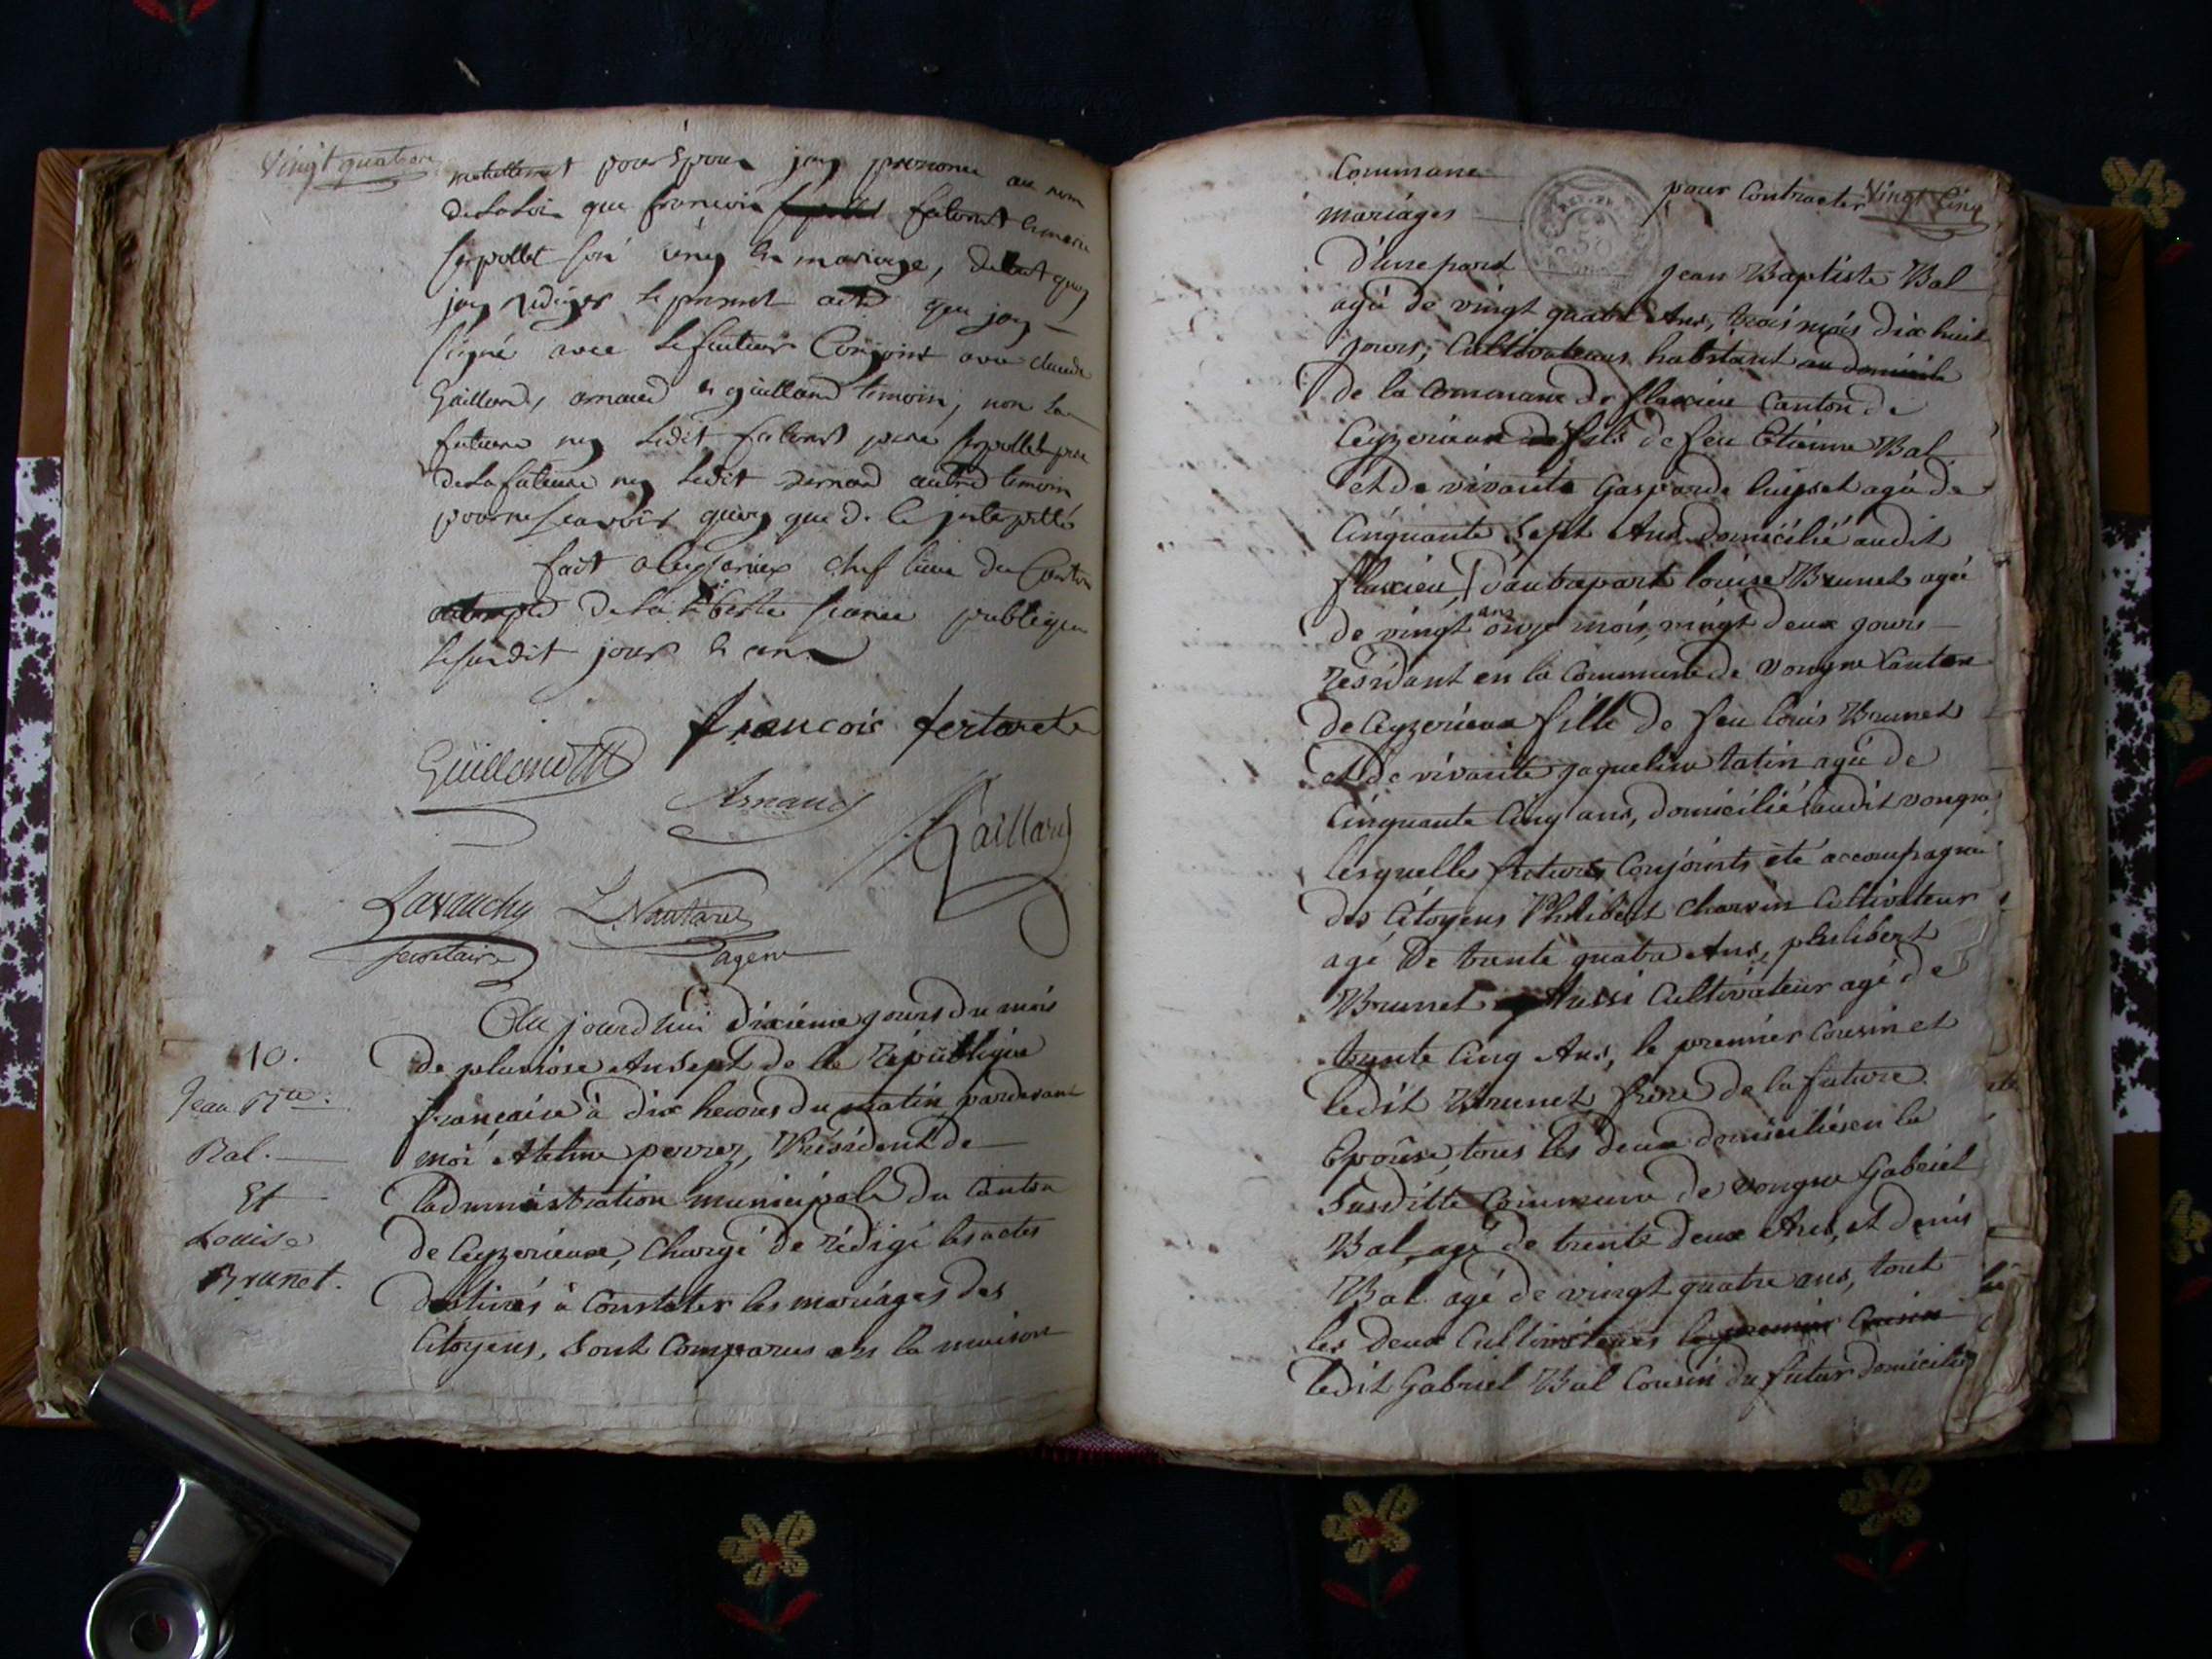 Vingt quatre
mutuellement pour Epoux jay prononcé au nom
de la Loi que françois fertoret et marie
serpollet son uny En mariage, de tout quoy
jay rediger le present acte que jay
signé avec le futeur Conjoint avec claude
Gaillard, arnaud et guilland temoin, non la
future ny ledit fertoret pere serpollet pere
de la future ny ledit autre temoin
pour ne scavoir quoy que de ce interpellé
fait a Ceyzerieux chef lieu du Canton
seance publique
le susdit jour et an
françois fertoret
Guilland
Arnaud
Gaillard
Lavauchy
secretaire
agent
Au jourd'hui dixieme jours du mois
10.
de pluviose An sept de la République
Jean Bte.
française à dix heures du matin pardevant
moi Antelme perrer, Président de
Bal.
l'administration municipale du Canton
Et
de Ceyzerieux, Chargé de rédigé les actes
Louise
Brunet.
destinés à Constater les mariages des
Citoyens, Sont Comparus en la maison
Commune pour Contracter Vingt Cinq
mariages
D'une part Jean Baptiste Bal
agé de vingt quatre Ans, trois mois dix huit
jours, Cultivateurs habitant au domicile
de la Commune de flaxieu Canton de
Ceyzerieux fils de feu Etienne Bal
et de vivante Gasparde agé de
Cinquante Sept Ans domicilié audit
flaxieu, d'autre part louise Brunet agée
de vingt ans onze mois, vingt deux jours
résidant en la Commune de vongne Canton
de Ceyzerieux fille de feu louis Brunet
et de vivante jaqueline tatin agé de
Cinquante Cinq ans, domicilié audit vongne
lesquelles futures Conjoints été accompagné
des Citoyens Philibert Charvin Cultivateur
agé De trente quatre Ans, philibert
Brunet Aussi Cultivateur agé de
trente Cinq Ans, le premier Cousin et
ledit Brunet frere de la future
Epouse, tous les deux domiciliés en la
Susditte Commune de vongne Gabriel
Bal agé de trente deux Ans, et denis
Bal agé de vingt quatre ans, tout
les deux Cultivateurs le premier Cousin
ledit Gabriel Bal Cousin du futur domicilié